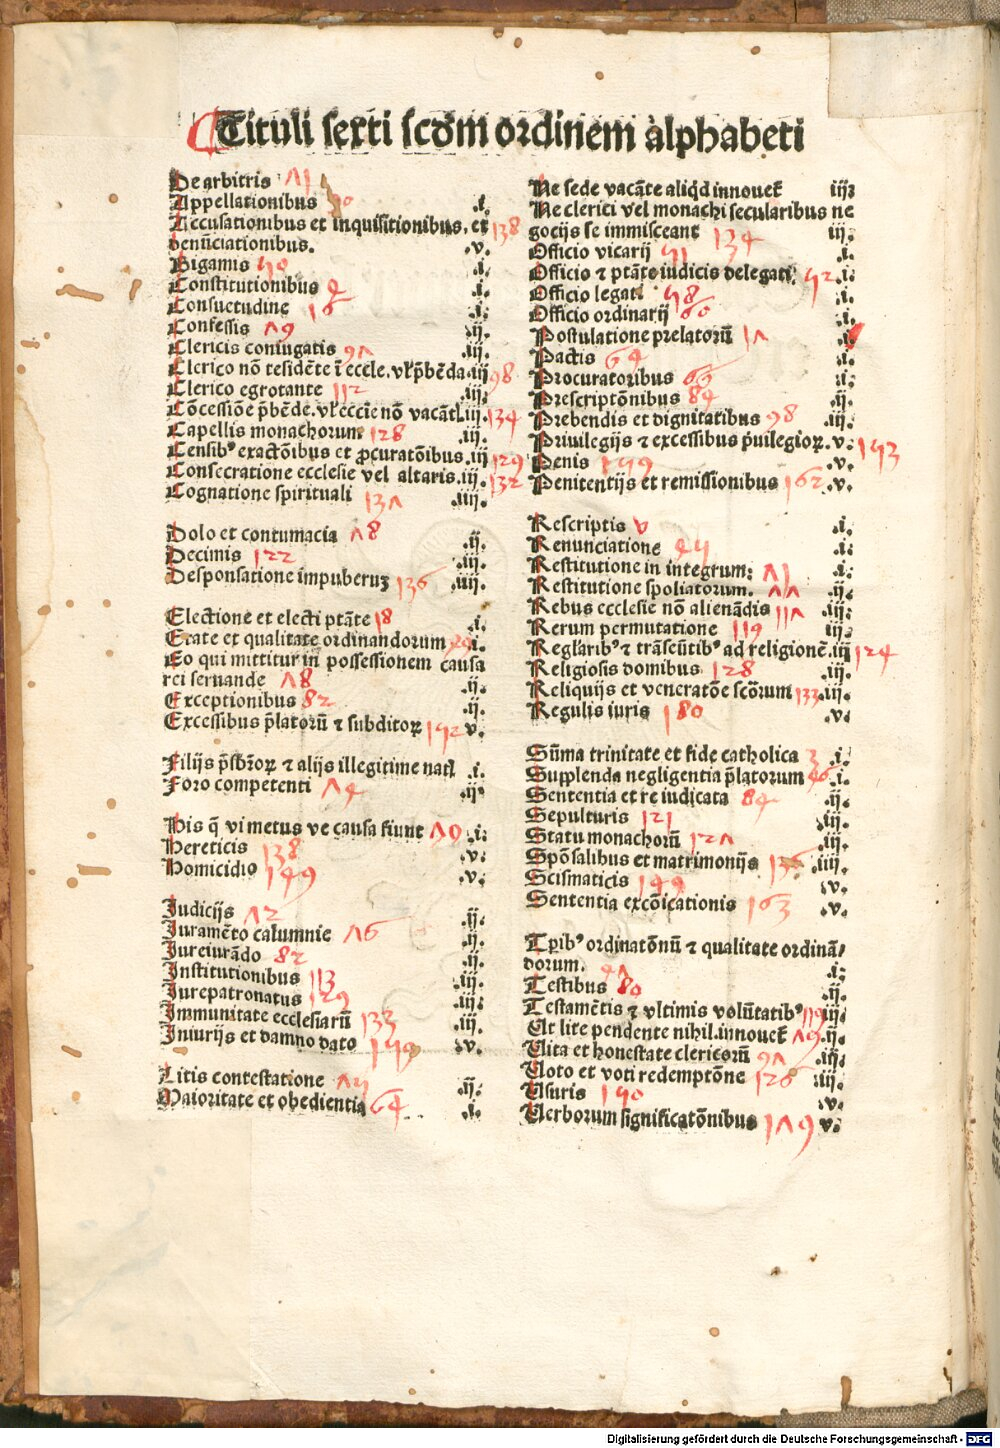 Tituli sexti scd̄m ordinem alphabeti
De arbitris 71
Appellationibus .i.
Accusationibus et inquisitionibus, et 138
denūciationibus. .v.
Bigamis 50 .i.
Constitutionibus 2 .i.
Consuetudine 16 .i.
Confessis 79 .ii.
Clericis coniugatis 97 .iii.
Clerico nō residēte ī eccle. vl' p̄bēda .iii 98
Clerico egrotante 112 .iii.
Cōcessiōe p̄bēde. vl' eccie nō vacāt. iii. 134
Capellis monachorum 128 .iii.
Censibꝰ exactōibus et ꝓcuratōibus .iii 129
Consecratione ecclesie vel altaris .iii. 132
Cognatione spirituali 137 .iiii.
Dolo et contumacia 78 .ii.
Decimis 122 .iii.
Desponsatione impuberuꝫ 136 .iiii.
Electione et electi ptāte 18 .i.
Etate et qualitate ordinandorum .i.
Eo qui mittitur in possessionem causa
rei seruande 78 .ii.
Exceptionibus 82 .ii.
Excessibus p̄latorū ⁊ subditoꝝ 142 v.
Filijs p̄sb̄roꝝ ⁊ alijs illegitime nat .i.
Foro competenti 74 .ii.
His q̄ vi metus ve causa fiunt 70 .i.
Hereticis 138 .v.
Homicidio 149 .v.
Iudicijs 72 .ii.
Iuramēto calumnie 76 .ii.
Iureiurādo 82 .ii.
Institutionibus 113 .iii.
Iurepatronatus 129 .iii.
Immunitate ecclesiarū 133 .iii.
Iniurijs et damno dato 149 .v.
Litis contestatione 75 .ii.
Maioritate et obedientia 64 .i.
Ne sede vacāte aliqd innouet iii
Ne clerici vel monachi secularibus ne
gocijs se immisceant 134 iii.
Officio vicarij 51 .i.
Officio ⁊ ptāte iudicis delegati 52 .i.
Officio legati 58 .i.
Officio ordinarij 60 .i.
Postulatione prelatorū 17 .i.
Pactis 64 .i.
Procuratoribus 66 .i.
Prescriptōnibus 84 .ii.
Prebendis et dignitatibus 98 .iii.
Priuilegijs ⁊ excessibus p̄uilegioꝝ. v. 143
Penis 149 .v.
Penitentijs et remissionibus 162 .v.
Rescriptis v .i.
Renunciatione 45 .i.
Restitutione in integrum: 71 .i.
Restitutione spoliatorum. 77 .ii.
Rebus ecclesie nō alienādis 117 .iii.
Rerum permutatione 119 iii
Reg̃laribꝰ ⁊ trāseūtibꝰ ad religionē. iii 124
Religiosis domibus 128 .iii.
Reliquijs et veneratōe scōrum 133 .iii.
Regulis iuris 180 .v.
Sūma trinitate et fide catholica 3 .i.
Supplenda negligentia p̄latorum 46 .i.
Sententia et re iudicata 84 .ii.
Sepulturis 121 .iii.
Statu monachorū 127 .iii.
Spōsalibus et matrimonijs 136 .iiii.
Scismaticis 149 .v.
Sententia excōicationis 163 .v.
Tp̄ibꝰ ordinatōnū ⁊ qualitate ordinā/
dorum. 47 .i.
Testibus 80 .ii.
Testamētis ⁊ vltimis volūtatibꝰ 119 iii
Vt lite pendente nihil innouet 79 .ii.
Vita et honestate clericorū 97 .iii.
Voto et voti redemptōne 126 .iii.
Vsuris 140 .v.
Verborum significatōnibus 179 v.
Digitalisierung gefördert durch die Deutsche Forschungsgemeinschaft - DFG